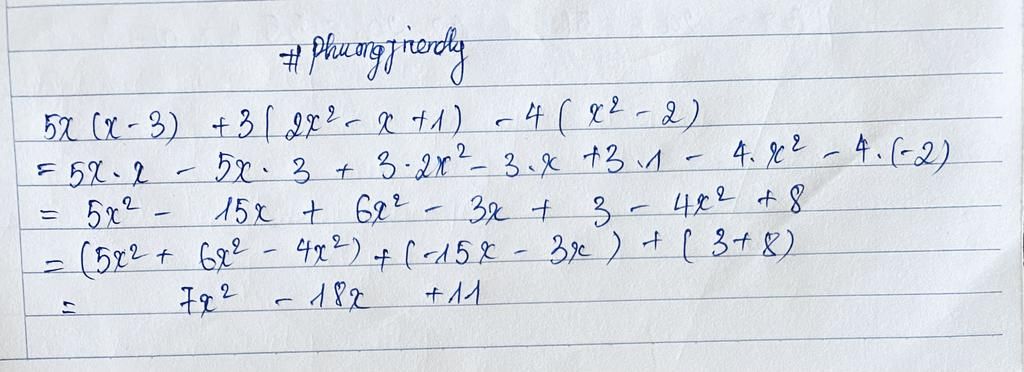 # Phuongfriendly
5x (x - 3) + 3( 2x² - x + 1) - 4 ( x² - 2)
= 5x . x - 5x . 3 + 3 . 2x² - 3 . x + 3 . 1 - 4 . x² - 4 . (-2)
= 5x² - 15x + 6x² - 3x + 3 - 4x² + 8
= (5x² + 6x² - 4x²) + (-15x - 3x ) + ( 3 + 8)
= 7x² - 18x + 11